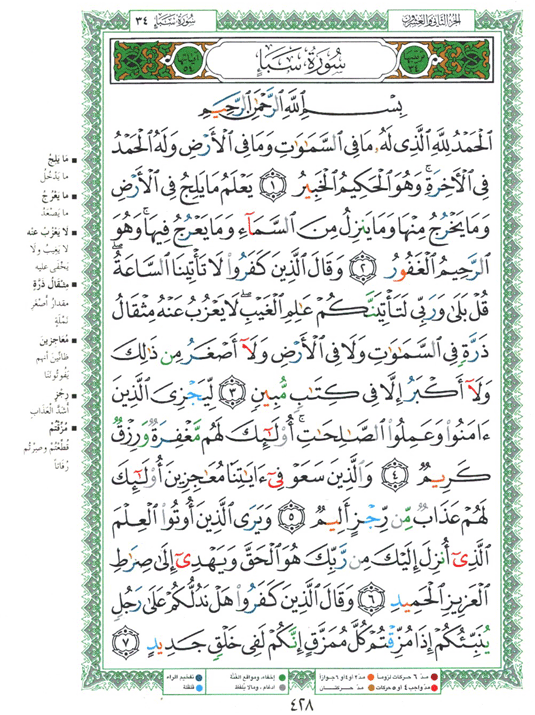 سُورَةُ سَبَإٍ ٣٤
الجزء الثاني والعشرون
سُورَةُ سَبَإٍ
بِسْمِ اللَّهِ الرَّحْمَٰنِ الرَّحِيمِ
الْحَمْدُ لِلَّهِ الَّذِي لَهُ مَا فِي السَّمَٰوَٰتِ وَمَا فِي الْأَرْضِ وَلَهُ الْحَمْدُ
فِي الْآخِرَةِ ۚ وَهُوَ الْحَكِيمُ الْخَبِيرُ ١ يَعْلَمُ مَا يَلِجُ فِي الْأَرْضِ
وَمَا يَخْرُجُ مِنْهَا وَمَا يَنزِلُ مِنَ السَّمَآءِ وَمَا يَعْرُجُ فِيهَا ۚ وَهُوَ
الرَّحِيمُ الْغَفُورُ ٢ وَقَالَ الَّذِينَ كَفَرُوا لَا تَأْتِينَا السَّاعَةُ ۖ
قُلْ بَلَىٰ وَرَبِّي لَتَأْتِيَنَّكُمْ عَٰلِمِ الْغَيْبِ ۖ لَا يَعْزُبُ عَنْهُ مِثْقَالُ
ذَرَّةٍ فِي السَّمَٰوَٰتِ وَلَا فِي الْأَرْضِ وَلَآ أَصْغَرُ مِن ذَٰلِكَ
وَلَآ أَكْبَرُ إِلَّا فِي كِتَٰبٍ مُّبِينٍ ٣ لِّيَجْزِيَ الَّذِينَ
ءَامَنُوا وَعَمِلُوا الصَّٰلِحَٰتِ ۚ أُولَٰٓئِكَ لَهُم مَّغْفِرَةٌ وَرِزْقٌ
كَرِيمٌ ٤ وَالَّذِينَ سَعَوْ فِيٓ ءَايَٰتِنَا مُعَٰجِزِينَ أُولَٰٓئِكَ
لَهُمْ عَذَابٌ مِّن رِّجْزٍ أَلِيمٌ ٥ وَيَرَى الَّذِينَ أُوتُوا الْعِلْمَ
الَّذِيٓ أُنزِلَ إِلَيْكَ مِن رَّبِّكَ هُوَ الْحَقَّ وَيَهْدِيٓ إِلَىٰ صِرَٰطِ
الْعَزِيزِ الْحَمِيدِ ٦ وَقَالَ الَّذِينَ كَفَرُوا هَلْ نَدُلُّكُمْ عَلَىٰ رَجُلٍ
يُنَبِّئُكُمْ إِذَا مُزِّقْتُمْ كُلَّ مُمَزَّقٍ إِنَّكُمْ لَفِي خَلْقٍ جَدِيدٍ ٧
■ ما يلج
ما يدخل
■ ما يعرج
ما يصعد
■ لا يعزب عنه
لا يغيب ولا
يخفى عليه
■ مثقال ذرة
مقدار أصغر
نملة
■ معاجزين
ظانين أنهم
يفوتوننا
■ رجز
أشد العذاب
■ مزقتم
قطعتم وصرتم
رفاتا
مد ٦ حركات لزوما ● مد ٢ أو ٤ أو ٦ جوازا ● إخفاء، ومواقع الغنة ● تفخيم الراء
مد واجب ٤ أو ٥ حركات ● مد حركتان ● إدغام، وما لا يلفظ ● قلقلة
٤٢٨